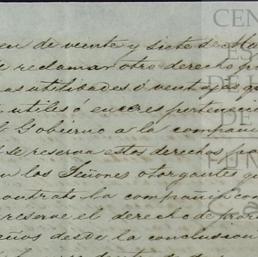 CEN
en de veinte y siete de Ma
reclamar otro derecho
as utilidades ó ventajas q
utiles ó enceres pertenecie
Gobierno a la compañi
se reserva estos derechos po
n los Señores otorgantes qu
contrato la compañia con
reserve el derecho de pror
años desde la conclusion